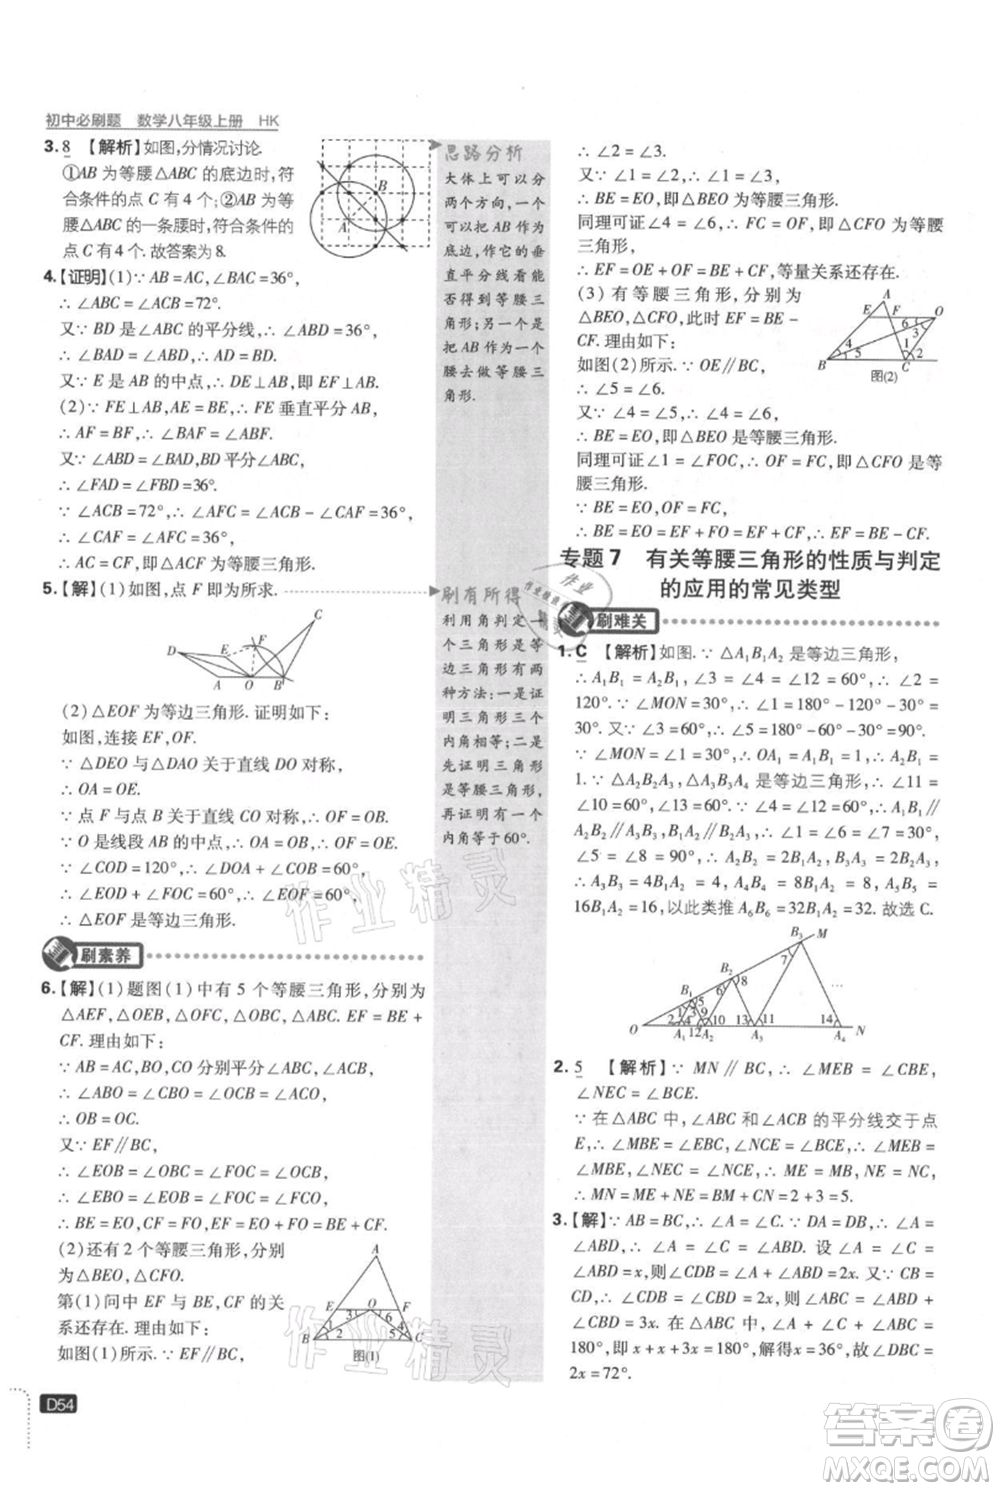 初中必刷题 数学八年级上册 HK
3. 8 【解析】如图,分情况讨论.
①AB为等腰△ABC的底边时,符合条件的点C有4个;②AB为等腰△ABC的一条腰时,符合条件的点C有4个.故答案为8.
4.【证明】(1)∵AB=AC,∠BAC=36°,
∴∠ABC=∠ACB=72°.
又∵BD是∠ABC的平分线,∴∠ABD=36°,
∴∠BAD=∠ABD,∴AD=BD.
又∵E是AB的中点,∴DE⊥AB,即FE⊥AB.
(2)∵FE⊥AB,AE=BE,∴FE垂直平分AB,
∴AF=BF,∴∠BAF=∠ABF.
又∵∠ABD=∠BAD,∴∠FAD=∠FBD=36°.
∴∠FAD=∠FBD=36°.
又∵∠ACB=72°,∴∠AFC=∠ACB-∠CAF=36°,
∴AC=CF,即△ACF为等腰三角形.
5.【解】(1)如图所示,点F即为所求.
D E F C
A O B
(2)△EOF为等边三角形.证明如下:
如图,连接EF,OF.
∵△DEO与△DAO关于直线DO对称,
∴OA=OE.
∵点F与点B关于直线CO对称,∴OF=OB.
∵O是线段AB的中点,∴OA=OB,∴OE=OF.
∵∠COD=120°,∴∠DOA+∠COB=60°,
∴∠EOD+∠FOC=60°,∴∠EOF=60°,
∴△EOF是等边三角形.
刷素养
6.【解】(1)题图(1)中有5个等腰三角形,分别为△AEF,△OEB,△OFC,△OBC,△ABC.EF=BE+CF.理由如下:
∵AB=AC,BO,CO分别平分∠ABC,∠ACB,
∴∠ABO=∠CBO=∠OCB=∠ACO,
∴OB=OC.
又∵EF∥BC,
∴∠EOB=∠OBC=∠FOC=∠OCB,
∴∠ABO=∠EOB=∠FOC=∠ACO,
∴BE=EO,CF=FO,∴EF=EO+OF=BE+CF.
(2)还有2个等腰三角形,分别为△BEO,△CFO.
第(1)问中EF与BE,CF的关系还存在.理由如下:
如图(1)所示,∵∠1=∠2,
A E O F B C 图(1)
D54
思路分析
大体上可以分两个方向,一个可以把AB作为底边,作它的垂直平分线看能否得到等腰三角形;另一个是把AB作为一个腰去做等腰三角形.
刷有所得
利用角判定一个三角形是等边三角形有两种方法:一是证明三角形三个内角相等;二是先证明三角形是等腰三角形,再证明有一个内角等于60°.
又∵EF∥BC,∴∠2=∠3.
∴∠1=∠3,
∴BE=EO,即△BEO为等腰三角形.
同理可证∠4=∠6,∴FC=OF,即△CFO为等腰三角形.
∴EF=OE+OF=BE+FC,等量关系还存在.
(3)有等腰三角形,分别为△BEO,△CFO,此时EF=BE-CF.理由如下:
如图(2)所示.∵OE∥BC,
∴∠5=∠6.
又∵∠4=∠5,∴∠4=∠6,
∴BE=EO,∴△BEO是等腰三角形.
同理可证∠FOC=∠OCF,∴△CFO是等腰三角形.
∵BE=EO,OF=FC,
∴BE=EO=EF+FO=EF+CF,∴EF=BE-CF.
图(2)
专题7 有关等腰三角形的性质与判定
的应用的常见类型
刷难关
1. C 【解析】如图.∵△A₁B₁A₂是等边三角形,
∴A₁B₁=A₂B₁,∠3=∠4=∠12=60°,∴∠2=120°.∵∠MON=30°,∴∠1=180°-120°-30°=30°.又∵∠3=60°,∴∠5=180°-60°-30°=90°.∵∠MON=∠1=30°,∴OA₁=A₁B₁=1.
2. 5 【解析】∵MN∥BC,∴∠MEB=∠CBE,∠NEC=∠BCE.
∵在△ABC中,∠ABC和∠ACB的平分线交于点E,∴∠MBE=∠EBC,∠NCE=∠BCE,∴∠MEB=∠MBE,∠NEC=∠NCE,∴BM=ME,EN=CN.∴MN=ME+NE=BM+CN=2+3=5.
3.【解】∵AB=BC,∴∠A=∠C.∵DA=DB,∴∠A=∠ABD,∴∠A=∠C=∠ABD.设∠A=∠C=∠ABD=x,则∠CDB=∠A+∠ABD=2x.又∵BC=CD,∴∠CBD=∠CDB=2x,∴∠ABC=∠ABD+∠CBD=3x.在△ABC中,∵∠A+∠C+∠ABC=180°,即x+x+3x=180°,∴x=36°,∴∠DBC=2x=72°.
答案圈
MXQE.COM